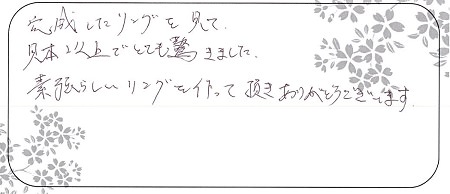 完成したリングを見て、
見本以上でとても驚きました。
素晴らしいリングを作って頂きありがとうございます。